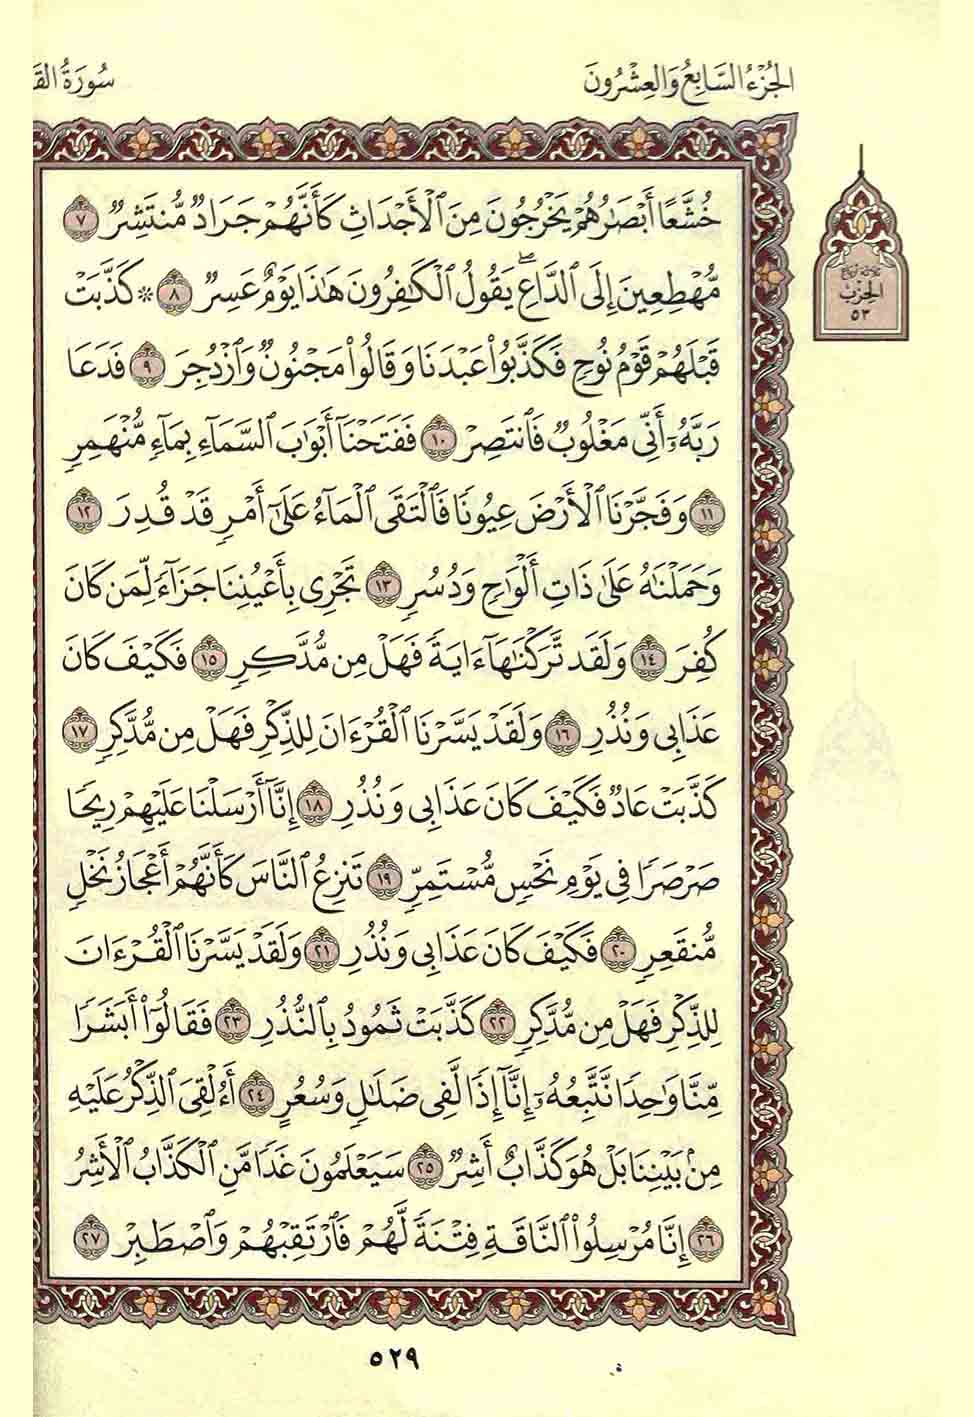 الجُزْءُ السَّابِعُ وَالعِشْرُونَ
سُورَةُ القَ
خُشَّعًا أَبْصَٰرُهُمْ يَخْرُجُونَ مِنَ ٱلْأَجْدَاثِ كَأَنَّهُمْ جَرَادٌ مُّنتَشِرٌ ٧
مُّهْطِعِينَ إِلَى ٱلدَّاعِ ۖ يَقُولُ ٱلْكَٰفِرُونَ هَٰذَا يَوْمٌ عَسِرٌ ٨ ۞ كَذَّبَتْ
قَبْلَهُمْ قَوْمُ نُوحٍ فَكَذَّبُوا۟ عَبْدَنَا وَقَالُوا۟ مَجْنُونٌ وَٱزْدُجِرَ ٩ فَدَعَا
رَبَّهُۥٓ أَنِّى مَغْلُوبٌ فَٱنتَصِرْ ١٠ فَفَتَحْنَآ أَبْوَٰبَ ٱلسَّمَآءِ بِمَآءٍ مُّنْهَمِرٍ
١١ وَفَجَّرْنَا ٱلْأَرْضَ عُيُونًا فَٱلْتَقَى ٱلْمَآءُ عَلَىٰٓ أَمْرٍ قَدْ قُدِرَ ١٢
وَحَمَلْنَٰهُ عَلَىٰ ذَاتِ أَلْوَٰحٍ وَدُسُرٍ ١٣ تَجْرِى بِأَعْيُنِنَا جَزَآءً لِّمَن كَانَ
كُفِرَ ١٤ وَلَقَد تَّرَكْنَٰهَآ ءَايَةً فَهَلْ مِن مُّدَّكِرٍ ١٥ فَكَيْفَ كَانَ
عَذَابِى وَنُذُرِ ١٦ وَلَقَدْ يَسَّرْنَا ٱلْقُرْءَانَ لِلذِّكْرِ فَهَلْ مِن مُّدَّكِرٍ ١٧
كَذَّبَتْ عَادٌ فَكَيْفَ كَانَ عَذَابِى وَنُذُرِ ١٨ إِنَّآ أَرْسَلْنَا عَلَيْهِمْ رِيحًا
صَرْصَرًا فِى يَوْمِ نَحْسٍ مُّسْتَمِرٍّ ١٩ تَنزِعُ ٱلنَّاسَ كَأَنَّهُمْ أَعْجَازُ نَخْلٍ
مُّنقَعِرٍ ٢٠ فَكَيْفَ كَانَ عَذَابِى وَنُذُرِ ٢١ وَلَقَدْ يَسَّرْنَا ٱلْقُرْءَانَ
لِلذِّكْرِ فَهَلْ مِن مُّدَّكِرٍ ٢٢ كَذَّبَتْ ثَمُودُ بِٱلنُّذُرِ ٢٣ فَقَالُوٓا۟ أَبَشَرًا
مِّنَّا وَٰحِدًا نَّتَّبِعُهُۥٓ إِنَّآ إِذًا لَّفِى ضَلَٰلٍ وَسُعُرٍ ٢٤ أَءُلْقِىَ ٱلذِّكْرُ عَلَيْهِ
مِنۢ بَيْنِنَا بَلْ هُوَ كَذَّابٌ أَشِرٌ ٢٥ سَيَعْلَمُونَ غَدًا مَّنِ ٱلْكَذَّابُ ٱلْأَشِرُ
٢٦ إِنَّا مُرْسِلُوا۟ ٱلنَّاقَةِ فِتْنَةً لَّهُمْ فَٱرْتَقِبْهُمْ وَٱصْطَبِرْ ٢٧
ثلاثة أرباع
الحزب
٥٣
٥٢٩